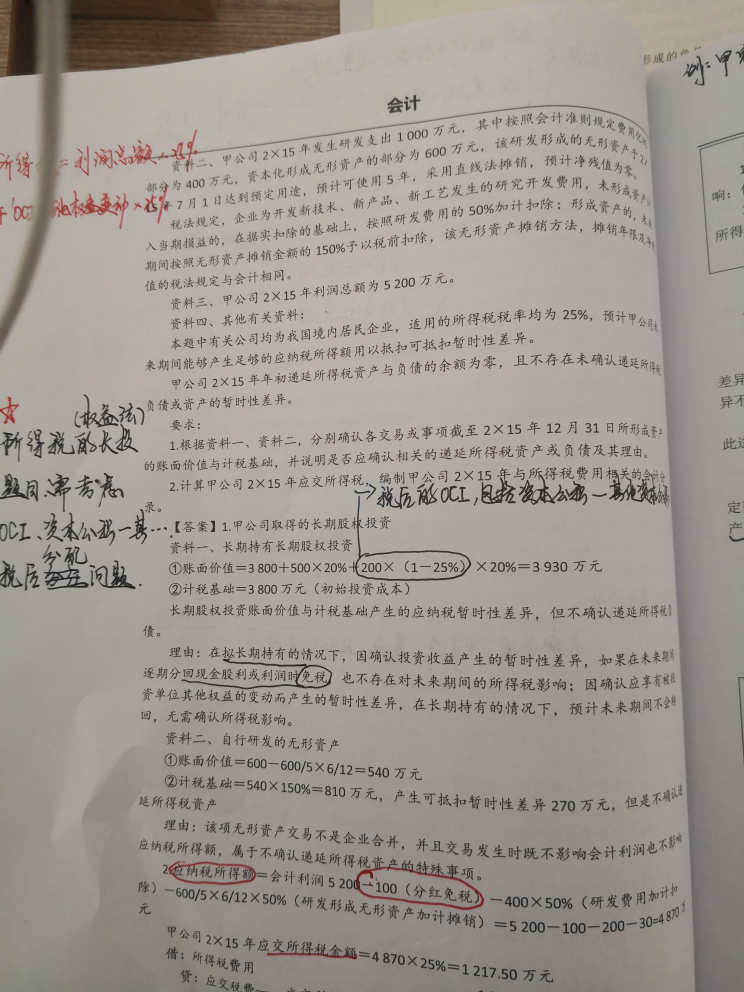 形成的负
例：甲
会计
所得 = 利润总额 × 25%
OCI 其他权益变动 × 25%
资料二、甲公司 2×15 年发生研发支出 1 000 万元，其中按照会计准则规定费用化的
部分为 400 万元，资本化形成无形资产的部分为 600 万元，该研发形成的无形资产于 2×
年 7 月 1 日达到预定用途，预计可使用 5 年，采用直线法摊销，预计净残值为零。
税法规定，企业为开发新技术、新产品、新工艺发生的研究开发费用，未形成资产计
入当期损益的，在据实扣除的基础上，按照研发费用的 50%加计扣除；形成资产的，未来
期间按照无形资产摊销金额的 150%予以税前扣除，该无形资产摊销方法，摊销年限及净残
值的税法规定与会计相同。
资料三、甲公司 2×15 年利润总额为 5 200 万元。
资料四、其他有关资料：
本题中有关公司均为我国境内居民企业，适用的所得税税率均为 25%，预计甲公司未
来期间能够产生足够的应纳税所得额用以抵扣可抵扣暂时性差异。
甲公司 2×15 年年初递延所得税资产与负债的余额为零，且不存在未确认递延所得税
负债或资产的暂时性差异。
要求：
1.根据资料一、资料二，分别确认各交易或事项截至 2×15 年 12 月 31 日所形成资产
的账面价值与计税基础，并说明是否应确认相关的递延所得税资产或负债及其理由。
2.计算甲公司 2×15 年应交所得税，编制甲公司 2×15 年与所得税费用相关的会计分
录。
→税后的OCI，包括资本公积—其他资本公积
☆
(权益法)
所得税的长投
题目，需考虑
OCI、资本公积—其…
税后分配问题．
【答案】1.甲公司取得的长期股权投资
资料一、长期持有长期股权投资
①账面价值＝3 800＋500×20%＋200×（1－25%）×20%＝3 930 万元
②计税基础＝3 800 万元（初始投资成本）
长期股权投资账面价值与计税基础产生的应纳税暂时性差异，但不确认递延所得税负
债。
理由：在拟长期持有的情况下，因确认投资收益产生的暂时性差异，如果在未来期间
逐期分回现金股利或利润时免税，也不存在对未来期间的所得税影响；因确认应享有被投
资单位其他权益的变动而产生的暂时性差异，在长期持有的情况下，预计未来期间不会转
回，无需确认所得税影响。
资料二、自行研发的无形资产
①账面价值＝600－600/5×6/12＝540 万元
②计税基础＝540×150%＝810 万元，产生可抵扣暂时性差异 270 万元，但是不确认递
延所得税资产
理由：该项无形资产交易不是企业合并，并且交易发生时既不影响会计利润也不影响
应纳税所得额，属于不确认递延所得税资产的特殊事项。
2.应纳税所得额＝会计利润 5 200－100（分红免税）－400×50%（研发费用加计扣
除）－600/5×6/12×50%（研发形成无形资产加计摊销）＝5 200－100－200－30＝4 870 万
元
甲公司 2×15 年应交所得税金额＝4 870×25%＝1 217.50 万元
借：所得税费用
贷：应交税费
响：
所得
差异
异不
此
定
产